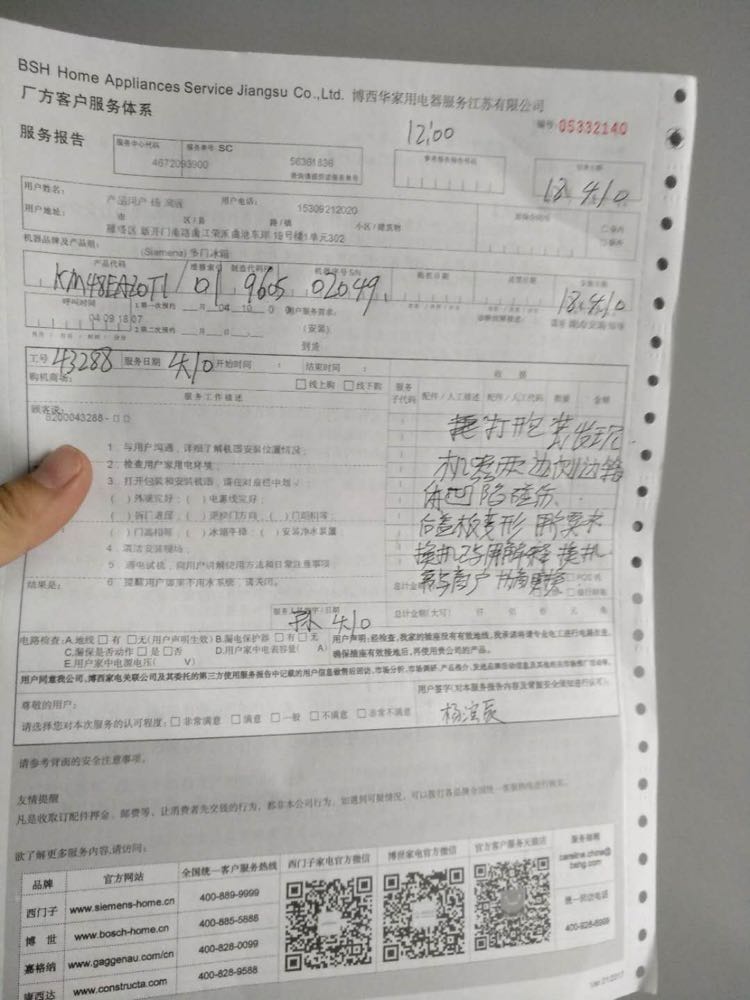 BSH Home Appliances Service Jiangsu Co.,Ltd. 博西华家用电器服务江苏有限公司
厂方客户服务体系
12:00
编号 05332140
服务报告
服务中心代码 服务单号 SC
4672093900 56361836
18.4.10
用户姓名: 用户电话: 15309212020
用户地址: 市 区/县 路/镇 小区/建筑物
机器品牌及产品组: (Siemens) 多门冰箱
产品代码 维修索引 制造代码 机器序号 S/N 购机日期
KM48EA20TI / 01 9605 02049 18.4.10
呼叫时间 1.第一次预约 月 04 10 用户服务要求:
04 09 18 07 2.第二次预约 (安装)
工号 43288 服务日期 4/10 开始时间 : 结束时间 : 收据
购机商场: □ 线上购 □ 线下购
服务工作描述 服务子代码 配件/人工描述 配件/人工代码 数量 金额
顾客说:
8200043288-□□
1 与用户沟通,详细了解机器安装位置情况;
2. 检查用户家用电环境;
3. 打开包装和安装机器,请在对应栏中划√:
( ) 外观完好; ( ) 电源线完好;
( ) 拆门进屋; ( ) 更换门方向; ( ) 门缝相等;
( ) 门高相等; ( ) 冰箱平稳; ( ) 安装净水装置
4 清洁安装现场;
5 通电试机,向用户讲解使用方法和日常注意事项
6 提醒用户如果不用水系统,请关闭。
打开包装发现
机器两边侧边箱
体凹陷碰伤.
后盖板变形 用户要求
换机 已与用户解释 换机
需与商户协商更换
结果是:
服务人员签字/日期
4/10
总计金额(大写) 仟 佰 元
电路检查: A.地线 □ 有 □ 无(用户声明生效) B.漏电保护器 □ 有 □ 无
C.漏保是否动作 □ 是 □ 否 D.用户家中电表容量( A)
E.用户家中电源电压( V)
用户声明:经检查,我家的插座没有有效地线,我承诺将请专业电工进行电路改造,
确保插座有效接地后,再使用贵公司的产品。
用户同意我公司、博西家电关联公司及其委托的第三方使用服务报告中记载的用户信息做售后回访,市场分析,市场调研,产品推介,
用户签字(对本服务报告内容及背面安全须知进行认可):
尊敬的用户:
请选择您对本次服务的认可程度: □ 非常满意 □ 满意 □ 一般 □ 不满意 □ 非常不满意
请参考背面的安全注意事项。
友情提醒
凡是收取订配件押金、邮费等,让消费者先交钱的行为,都非本公司行为,如遇到可疑情况,可以拨打各品牌全国统一客服热线进行核实。
欲了解更多服务内容,请访问:
品牌 官方网站 全国统一客户服务热线 西门子家电官方微信 博世家电官方微信 官方客户服务天猫店 服务邮箱
西门子 www.siemens-home.cn 400-889-9999
博 世 www.bosch-home.cn 400-885-5888
嘉格纳 www.gaggenau.com/cn 400-828-0099
www.constructa.com 400-828-9588